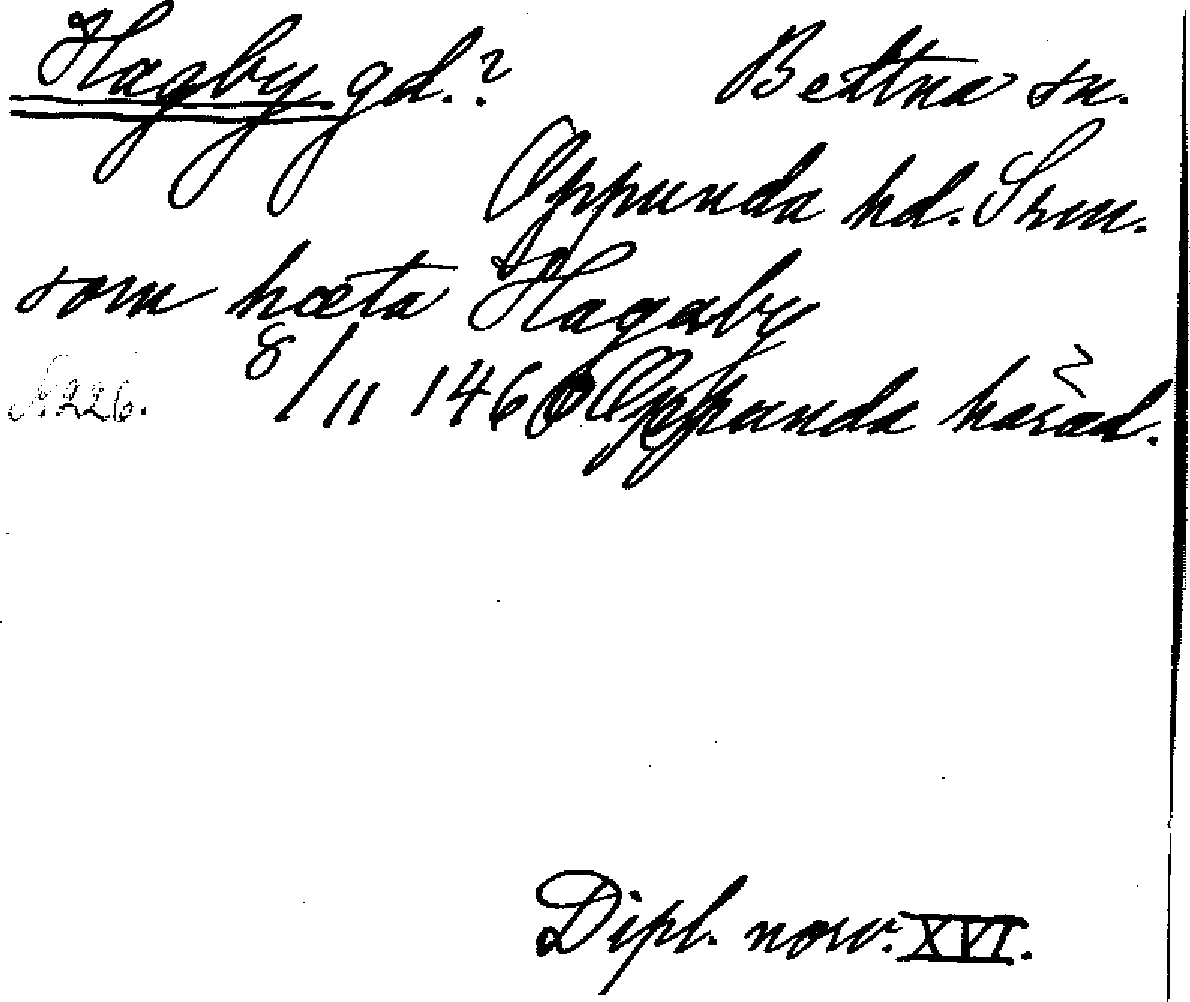 Hagby gd.? Bettna sn.
Oppunda hd. Srm.
som hæta Hagaby
N. 226. 8/11 1460 Oppunda härad.
Dipl. norv. XVI.